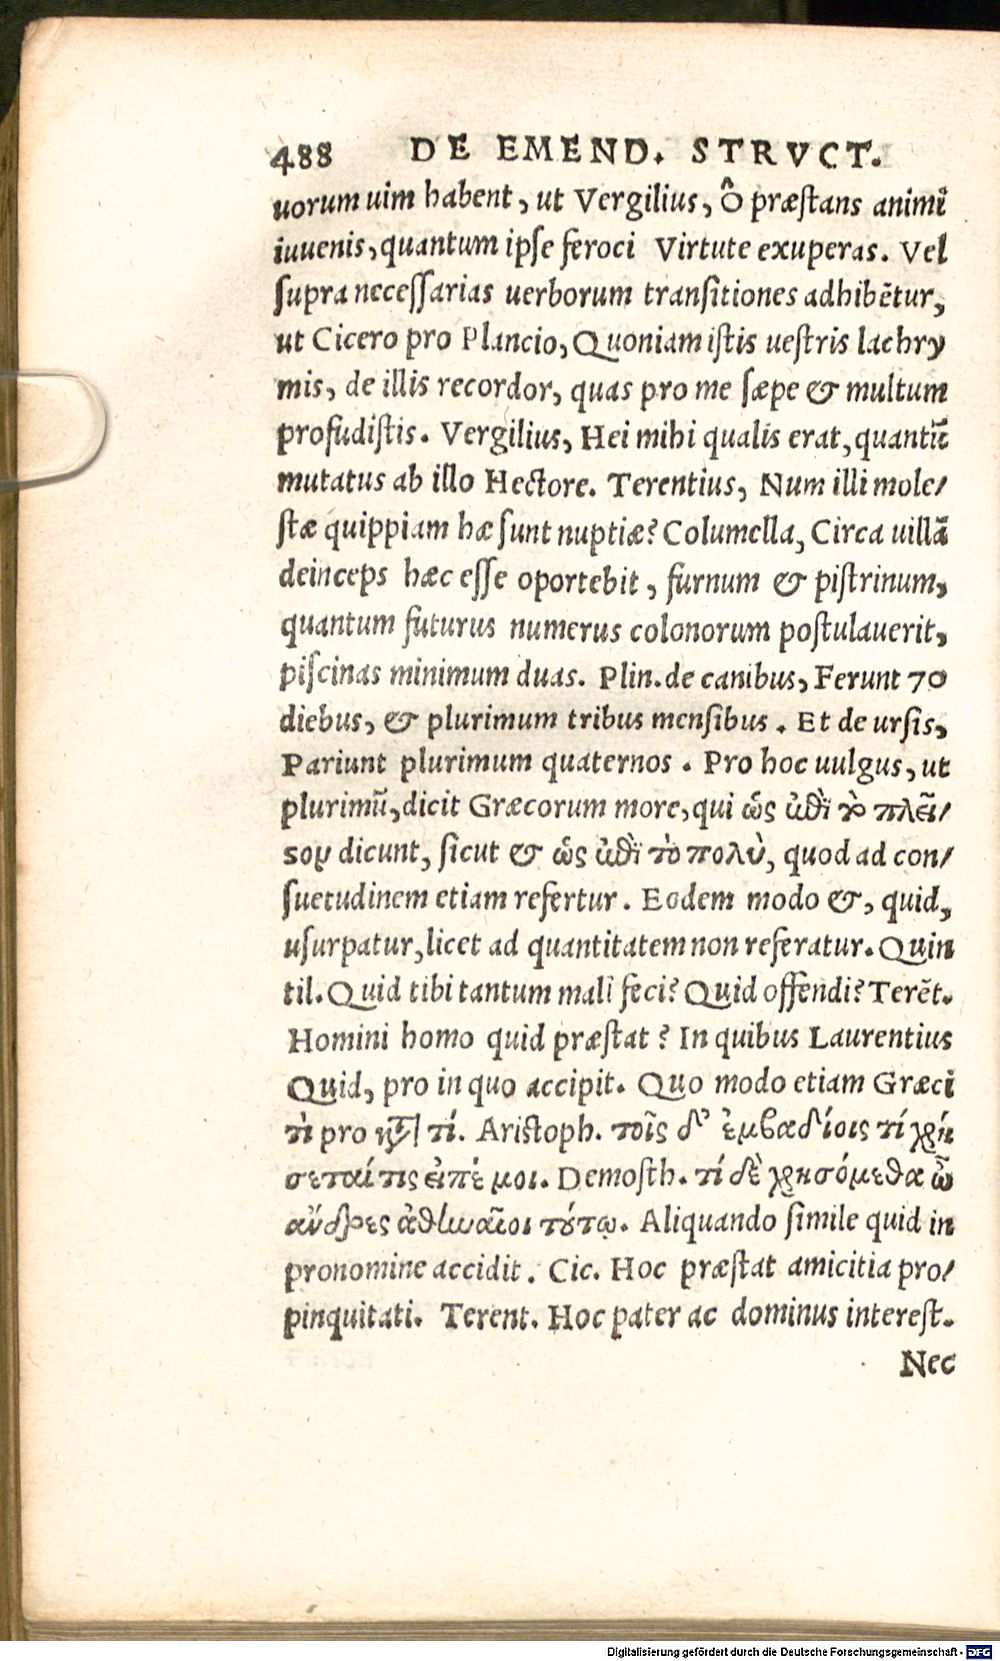 488 DE EMEND. STRVCT.
uorum uim habent, ut Vergilius, Ô præstans animi
iuuenis, quantum ipse feroci Virtute exuperas. Vel
supra necessarias uerborum transitiones adhibẽtur,
ut Cicero pro Plancio, Quoniam istis uestris lachry
mis, de illis recordor, quas pro me sæpe & multum
profudistis. Vergilius, Hei mihi qualis erat, quantũ
mutatus ab illo Hectore. Terentius, Num illi mole/
stæ quippiam hæ sunt nuptiæ? Columella, Circa uillã
deinceps hæc esse oportebit, furnum & pistrinum,
quantum futurus numerus colonorum postulauerit,
piscinas minimum duas. Plin. de canibus, Ferunt 70
diebus, & plurimum tribus mensibus. Et de ursis,
Pariunt plurimum quaternos. Pro hoc uulgus, ut
plurimũ, dicit Græcorum more, qui ὡς ἐπὶ τὸ πλεῖ/
ϛον dicunt, sicut & ὡς ἐπὶ τὸ πολὺ, quod ad con/
suetudinem etiam refertur. Eodem modo &, quid,
usurpatur, licet ad quantitatem non referatur. Quin
til. Quid tibi tantum mali feci? Quid offendi? Terẽt.
Homini homo quid præstat? In quibus Laurentius
Quid, pro in quo accipit. Quo modo etiam Græci
τὶ pro κατὰ τί. Aristoph. τοῖς δ' ἐμβαδίοις τί χρή
σεταί τις εἰπέ μοι. Demosth. τί δὲ χρησόμεθα ὦ
ἄνδρες ἀθηναῖοι τούτῳ. Aliquando simile quid in
pronomine accidit. Cic. Hoc præstat amicitia pro/
pinquitati. Terent. Hoc pater ac dominus interest.
Nec
Digitalisierung gefördert durch die Deutsche Forschungsgemeinschaft - DFG